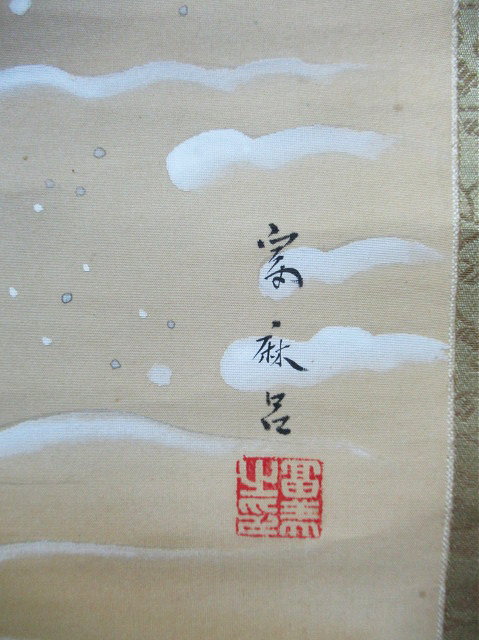 富麻呂
富美
之印